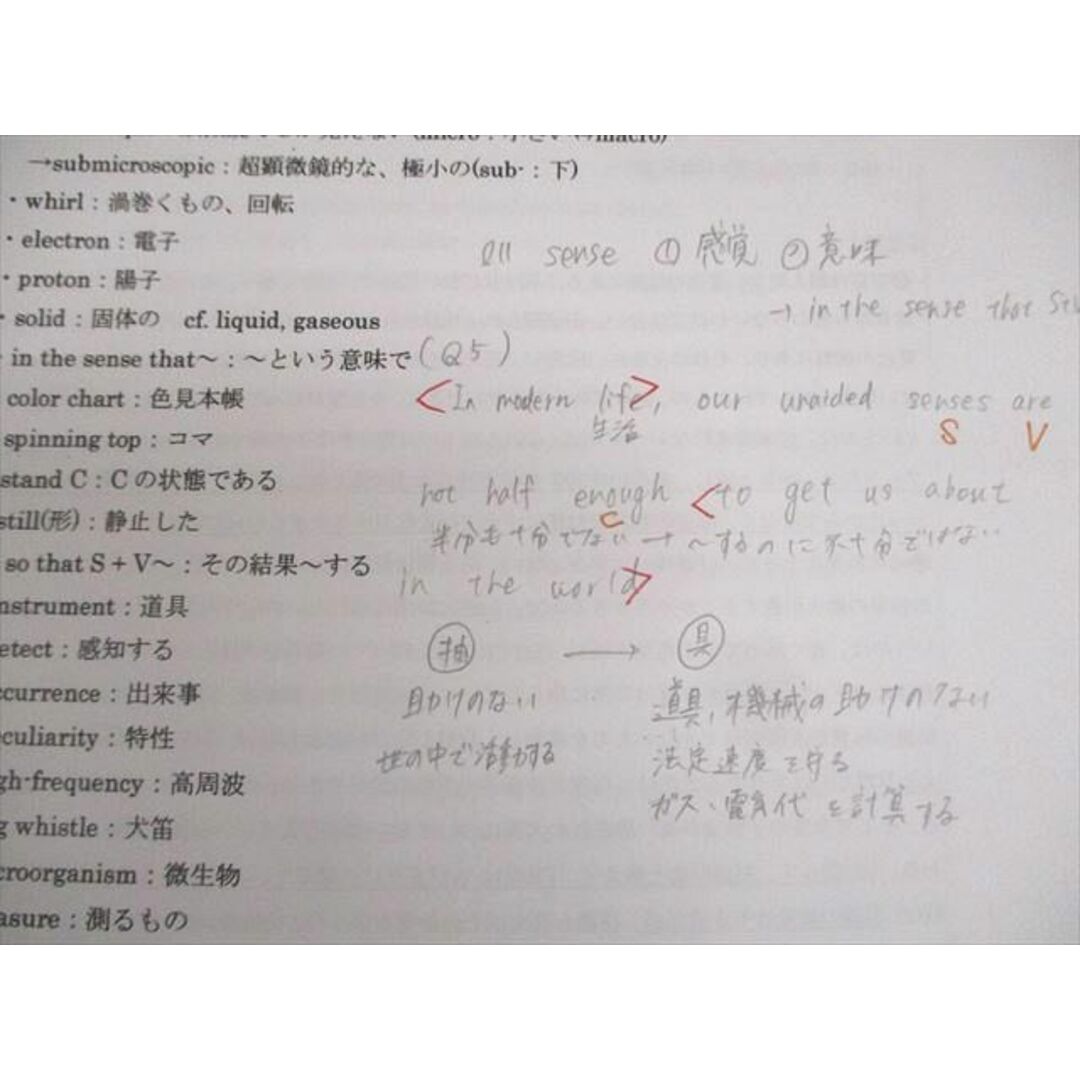 (micro：小さい⇔macro)
→submicroscopic：超顕微鏡的な、極小の(sub-：下)
・whirl：渦巻くもの、回転
・electron：電子
・proton：陽子
・solid：固体の　cf. liquid, gaseous
in the sense that～：～という意味で (Q5)
color chart：色見本帳
spinning top：コマ
stand C：Cの状態である
still(形)：静止した
so that S + V～：その結果～する
nstrument：道具
etect：感知する
ccurrence：出来事
culiarity：特性
gh-frequency：高周波
g whistle：犬笛
croorganism：微生物
asure：測るもの
sense ① 感覚 ② 意味
→ in the sense that
<In modern life>, our unaided senses are
生活 S V
not half enough <to get us about
C
半分も十分でない → ～するのに不十分でない
in the world>
抽 → 具
助けのない
世の中で活動する
道具、機械の助けのない
法定速度を守る
ガス・電気代を計算する